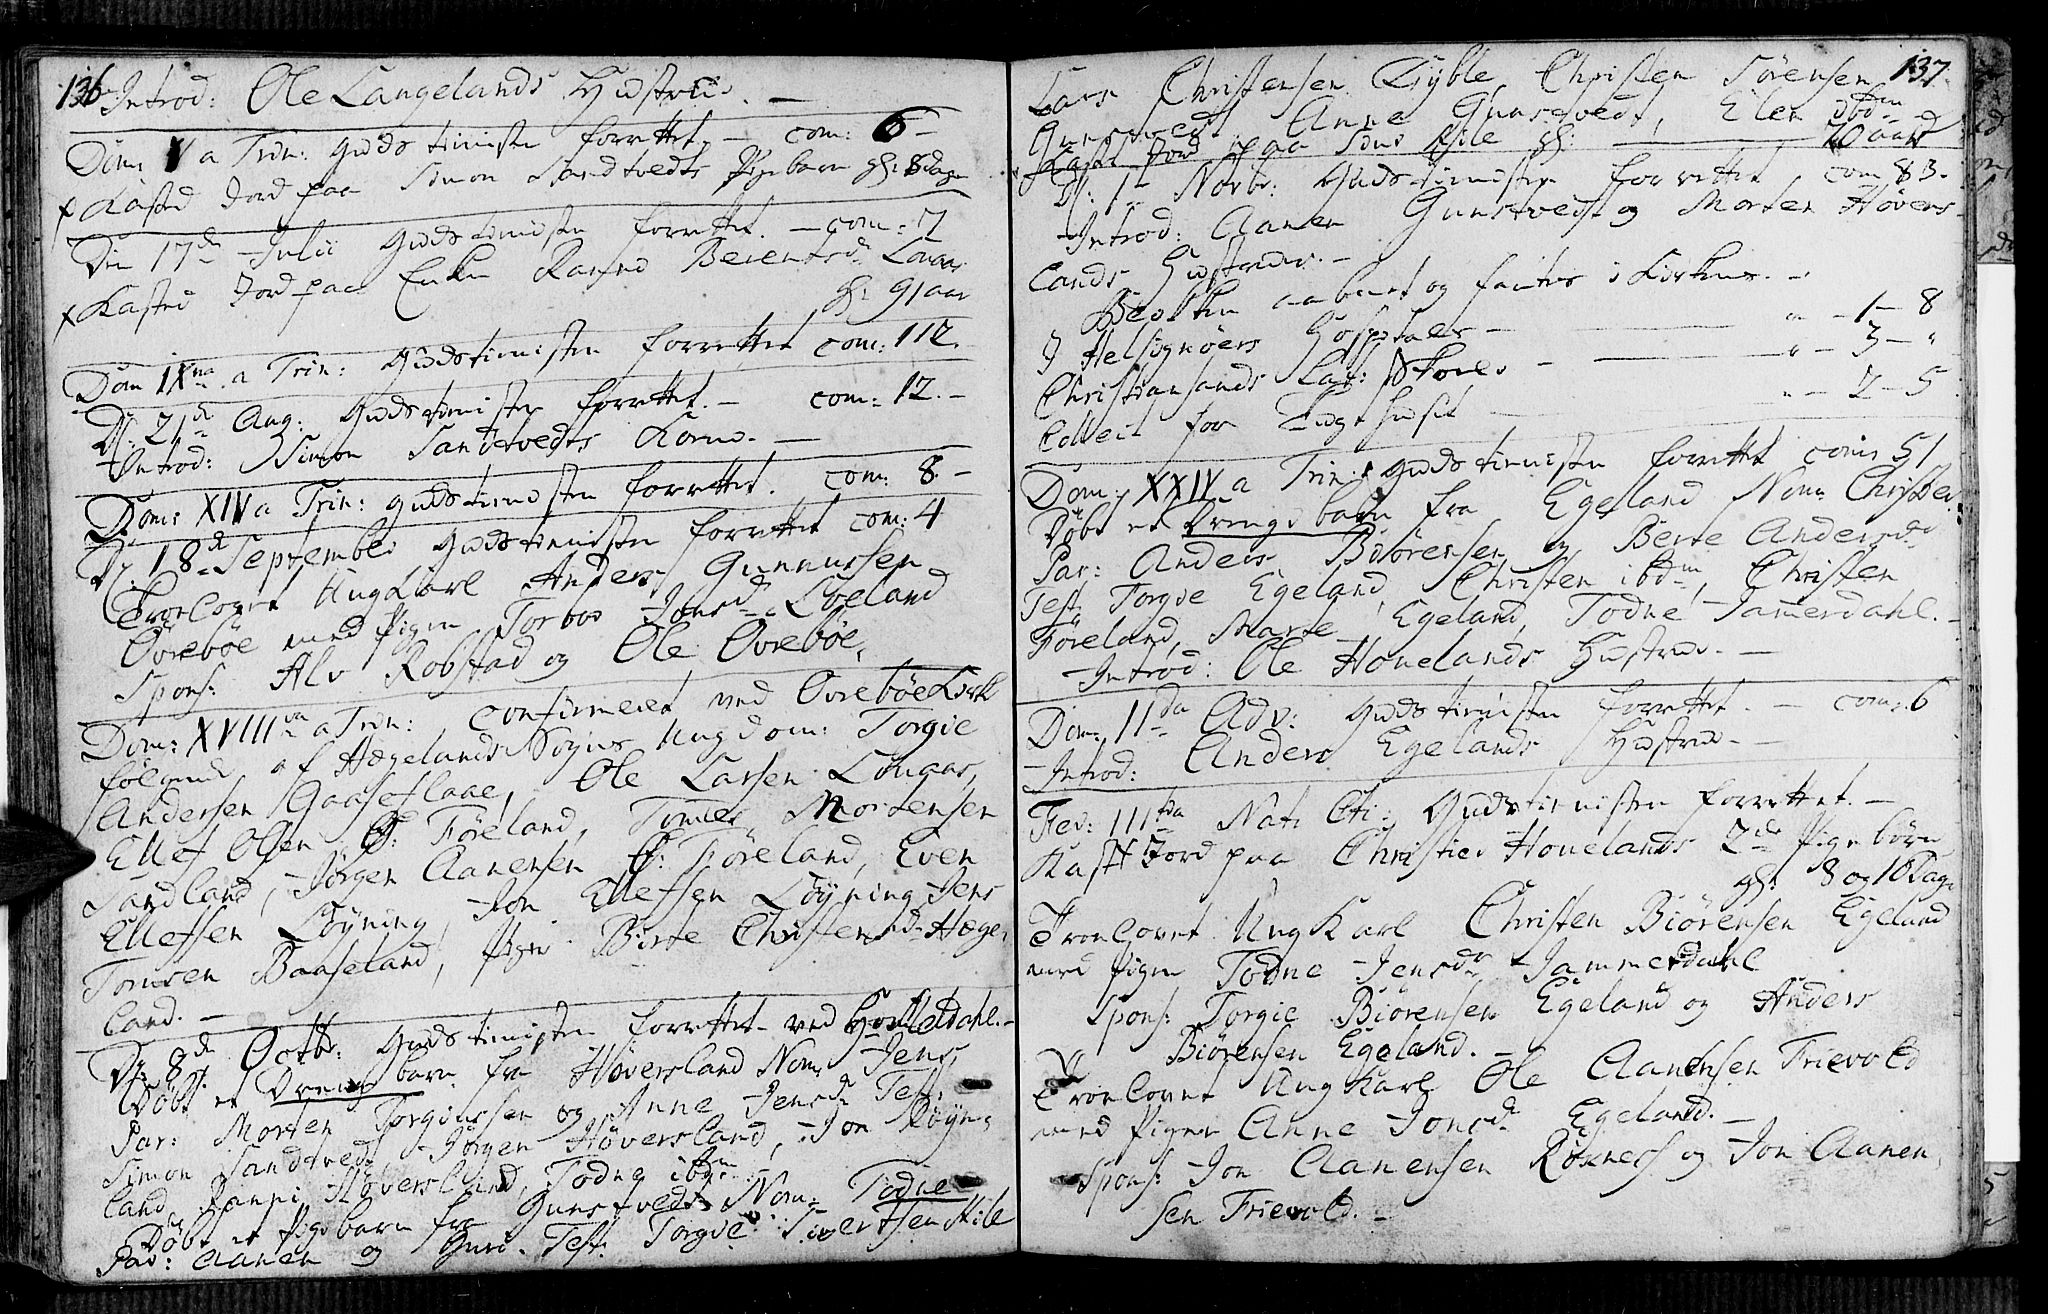 136
Introd: Ole Langelands Hustrue. —
Dom: V a Trin: Gudstienisten forrettet. — com: 6 —
x Kasted Jord paa Simon Sandtvedts Pigebarn gl: 8 dage
Den 17de Julii Gudstienisten forrettet. — com: 7
x Kasted Jord paa Enken Beientsd: Lonaas
gl: 91 aar
Dom IXna a Trin: Gudstienisten forrettet com: 112.
D: 21de Aug: Gudstienisten forrettet. — com: 12. —
Introd: Simon Sandtvedts Kone. —
Dom: XIV a Trin: Gudstienisten forrettet. com: 8. —
D: 18de Septembr Gudstienisten forrettet com: 4
Trolovet Ungkarl Anders Gunnufsen
Øvrebøe med Pigen Torbor Jonsd: Løeland
Spons: Alv Robstad og Ole Øvrebøe,
Dom: XVIIIva a Trin: confirmeret ved Øvrebøe Kirke
følgende af Hægelands Sogns Ungdom: Torgie
Andersen Gaaseflaae, Ole Larsen Lonaas,
Ellef Olsen Ø: Føreland, Tomes Mortensen
Sandland, Jørgen Aanensen Ø: Føreland, Even
Ellefsen Løyning, Jon Ellefsen Løyning, Jens
Tomsen Baaseland, Piger: Birte Christensd: Hæge-
land. —
D: 8de Octbr: Gudstienisten forrettet ved Homledahl. —
Døbt et Drenge barn fra Høversland Nom: Jens,
Par: Morten Torgiussen og Anne Jensd: Test:
Simon Sandtved, Jørgen Høversland, Jon Røyne-
land, Høversland, Todne ibdm
Døbt et Pigebarn fra Gunstvedt Nom: Todne
Par: Aanen og Guri. Test: Torgie Sivertsen Kile
137
Lars Christensen Kyble, Christen Sørensen
Gunstvedt Anne Gunstvedt, Elen ibdm
Kaste Jord paa Kile gl: 70 aar
D: 1te Novbr: Gudstienisten forrettet com 83.
Introd: Aanen Gunstvedt og Morten Høvers-
lands Hustruer. —
Bøssen aabnet og fantes i Kirken. —
I Helsignøers Hospitals — " — 1 — 8
Christiansands Lat: Skoles — " — 3 — "
Collect for Tugthuset — " — 2 — 5
Dom: XXIV a Trin: Gudstienisten forrettet com: 51
Døbt et Drenge barn fra Egeland Nom:
Par: Anders Biørensen og Berte Andersd:
Test: Torgie Egeland, Christen ibdm, Christen
Føreland, Marte Egeland, Todne Jammerdahl. —
Introd: Ole Hovelands Hustrue. —
Dom: IIda Adv: Gudstienisten forrettet. — com: 6
Introd: Anders Egelands Hustrue. —
Fer: IIItia Nat: Cti: Gudstienisten forrettet. —
Kast Jord paa Christies Hovelands 2de Pigebørn
gl: 8 og 10 Dage
Trolovet Ungkarl Christen Biørensen Egeland
med Pigen Todne Jensdr Jammerdahl
Spons: Torgie Biørensen Egeland og Anders
Biørensen Egeland. —
Trolovet Ungkarl Ole Aanensen Trievold
med Pigen Anne Jonsd: Egeland. —
Spons: Jon Aanensen Røsnes og Jon Aanen-
sen Trievold. —